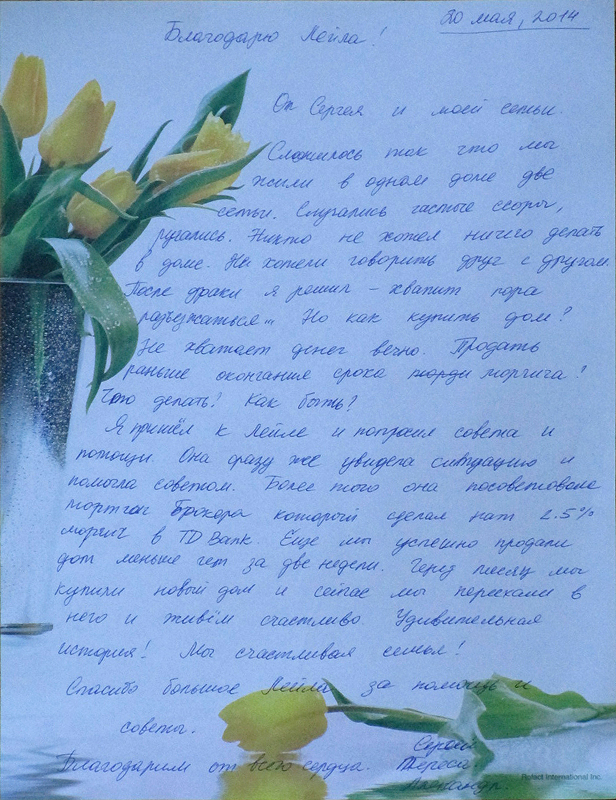 20 мая, 2014
Благодарю Лейла!
От Сергея и моей семьи.
Сложилось так что мы
жили в одном доме две
семьи. Слушались частые ссоры,
ругались. Никто не хотел ничего делать
в доме. Не хотели говорить друг с другом.
После драки я решил - хватит пора
разъезжаться... Но как купить дом?
Не хватает денег вечно. Продать
раньше окончания срока моргича?
Что делать! Как быть?
Я пришёл к Лейле и попросил совета и
помощи. Она сразу же увидела ситуацию и
помогла советом. Более того она посоветовала
мортгач Брокера который сделал нам 2.5%
моргич в TD Bank. Еще мы успешно продали
дом меньше чем за две недели. Через месяц мы
купили новый дом и сейчас мы переехали в
него и живём счастливо. Удивительная
история! Мы счастливая семья!
Спасибо большое Лейла за помощь и
советы.
Благодарим от всего сердца.
Сергей
Тереса.
Александр.
Rofact International Inc.